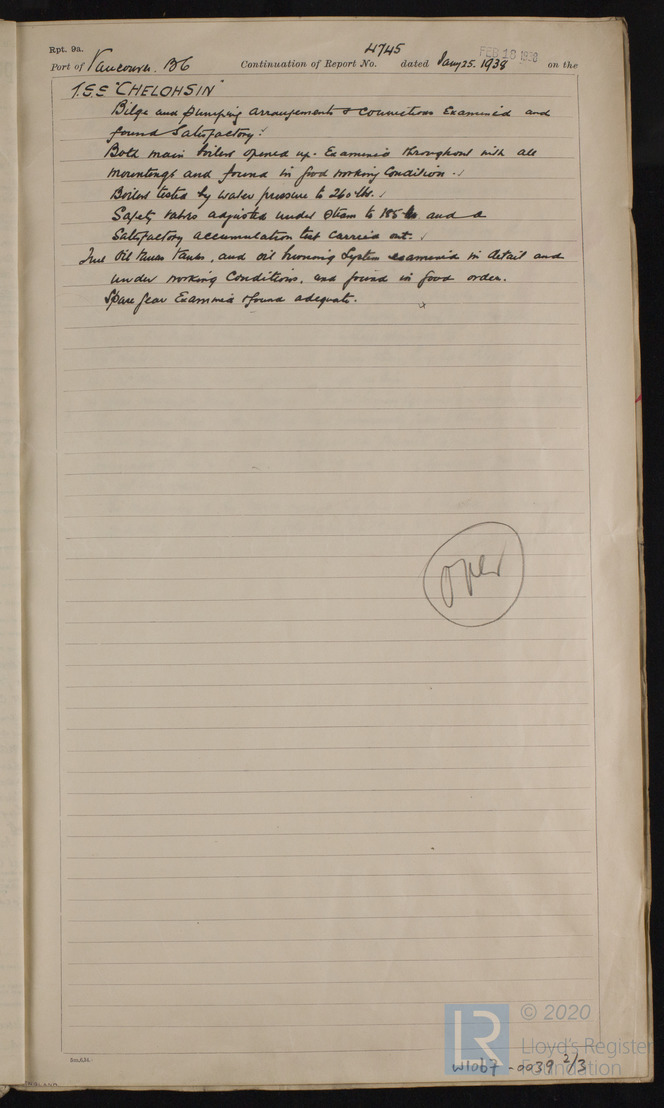 Rpt. 9a.
Port of Vancouver. BC Continuation of Report No. 4745 dated Jany 25. 1938 on the
FEB 18 1938
T.S.S "CHELOHSIN"
Bilge and Pumping arrangements & connections Examined and
found Satisfactory.
Both main boilers opened up. Examined throughout with all
mountings and found in good working condition.
Boilers tested by water pressure to 260 lbs.
Safety valves adjusted under Steam to 185 lbs and a
Satisfactory accumulation test carried out.
Fuel Oil Tanks, and oil burning System examined in detail and
under working Conditions, and found in good order.
Spare gear Examined & found adequate.
LR
© 2020
Lloyd's Register
Foundation
W1067-0039 2/3